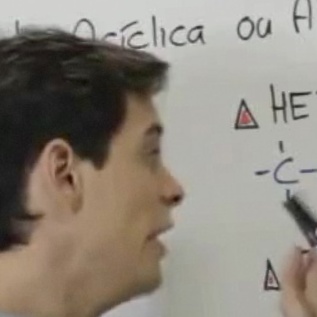 Acíclica ou A
HE
-C-